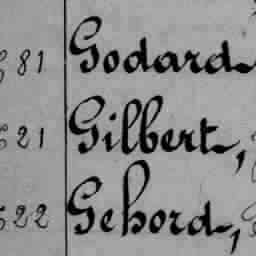 81 Godard
21 Gilbert,
22 Gehord,